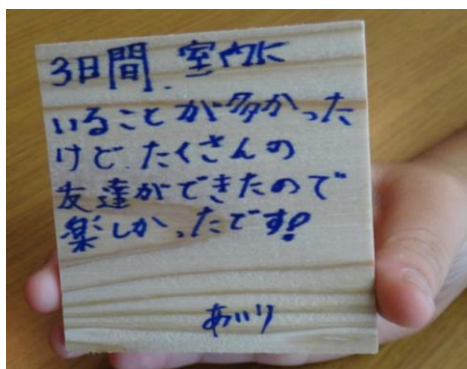 3日間 室内に
いることが多かった
けど、たくさんの
友達ができたので
楽しかったです!
あいり